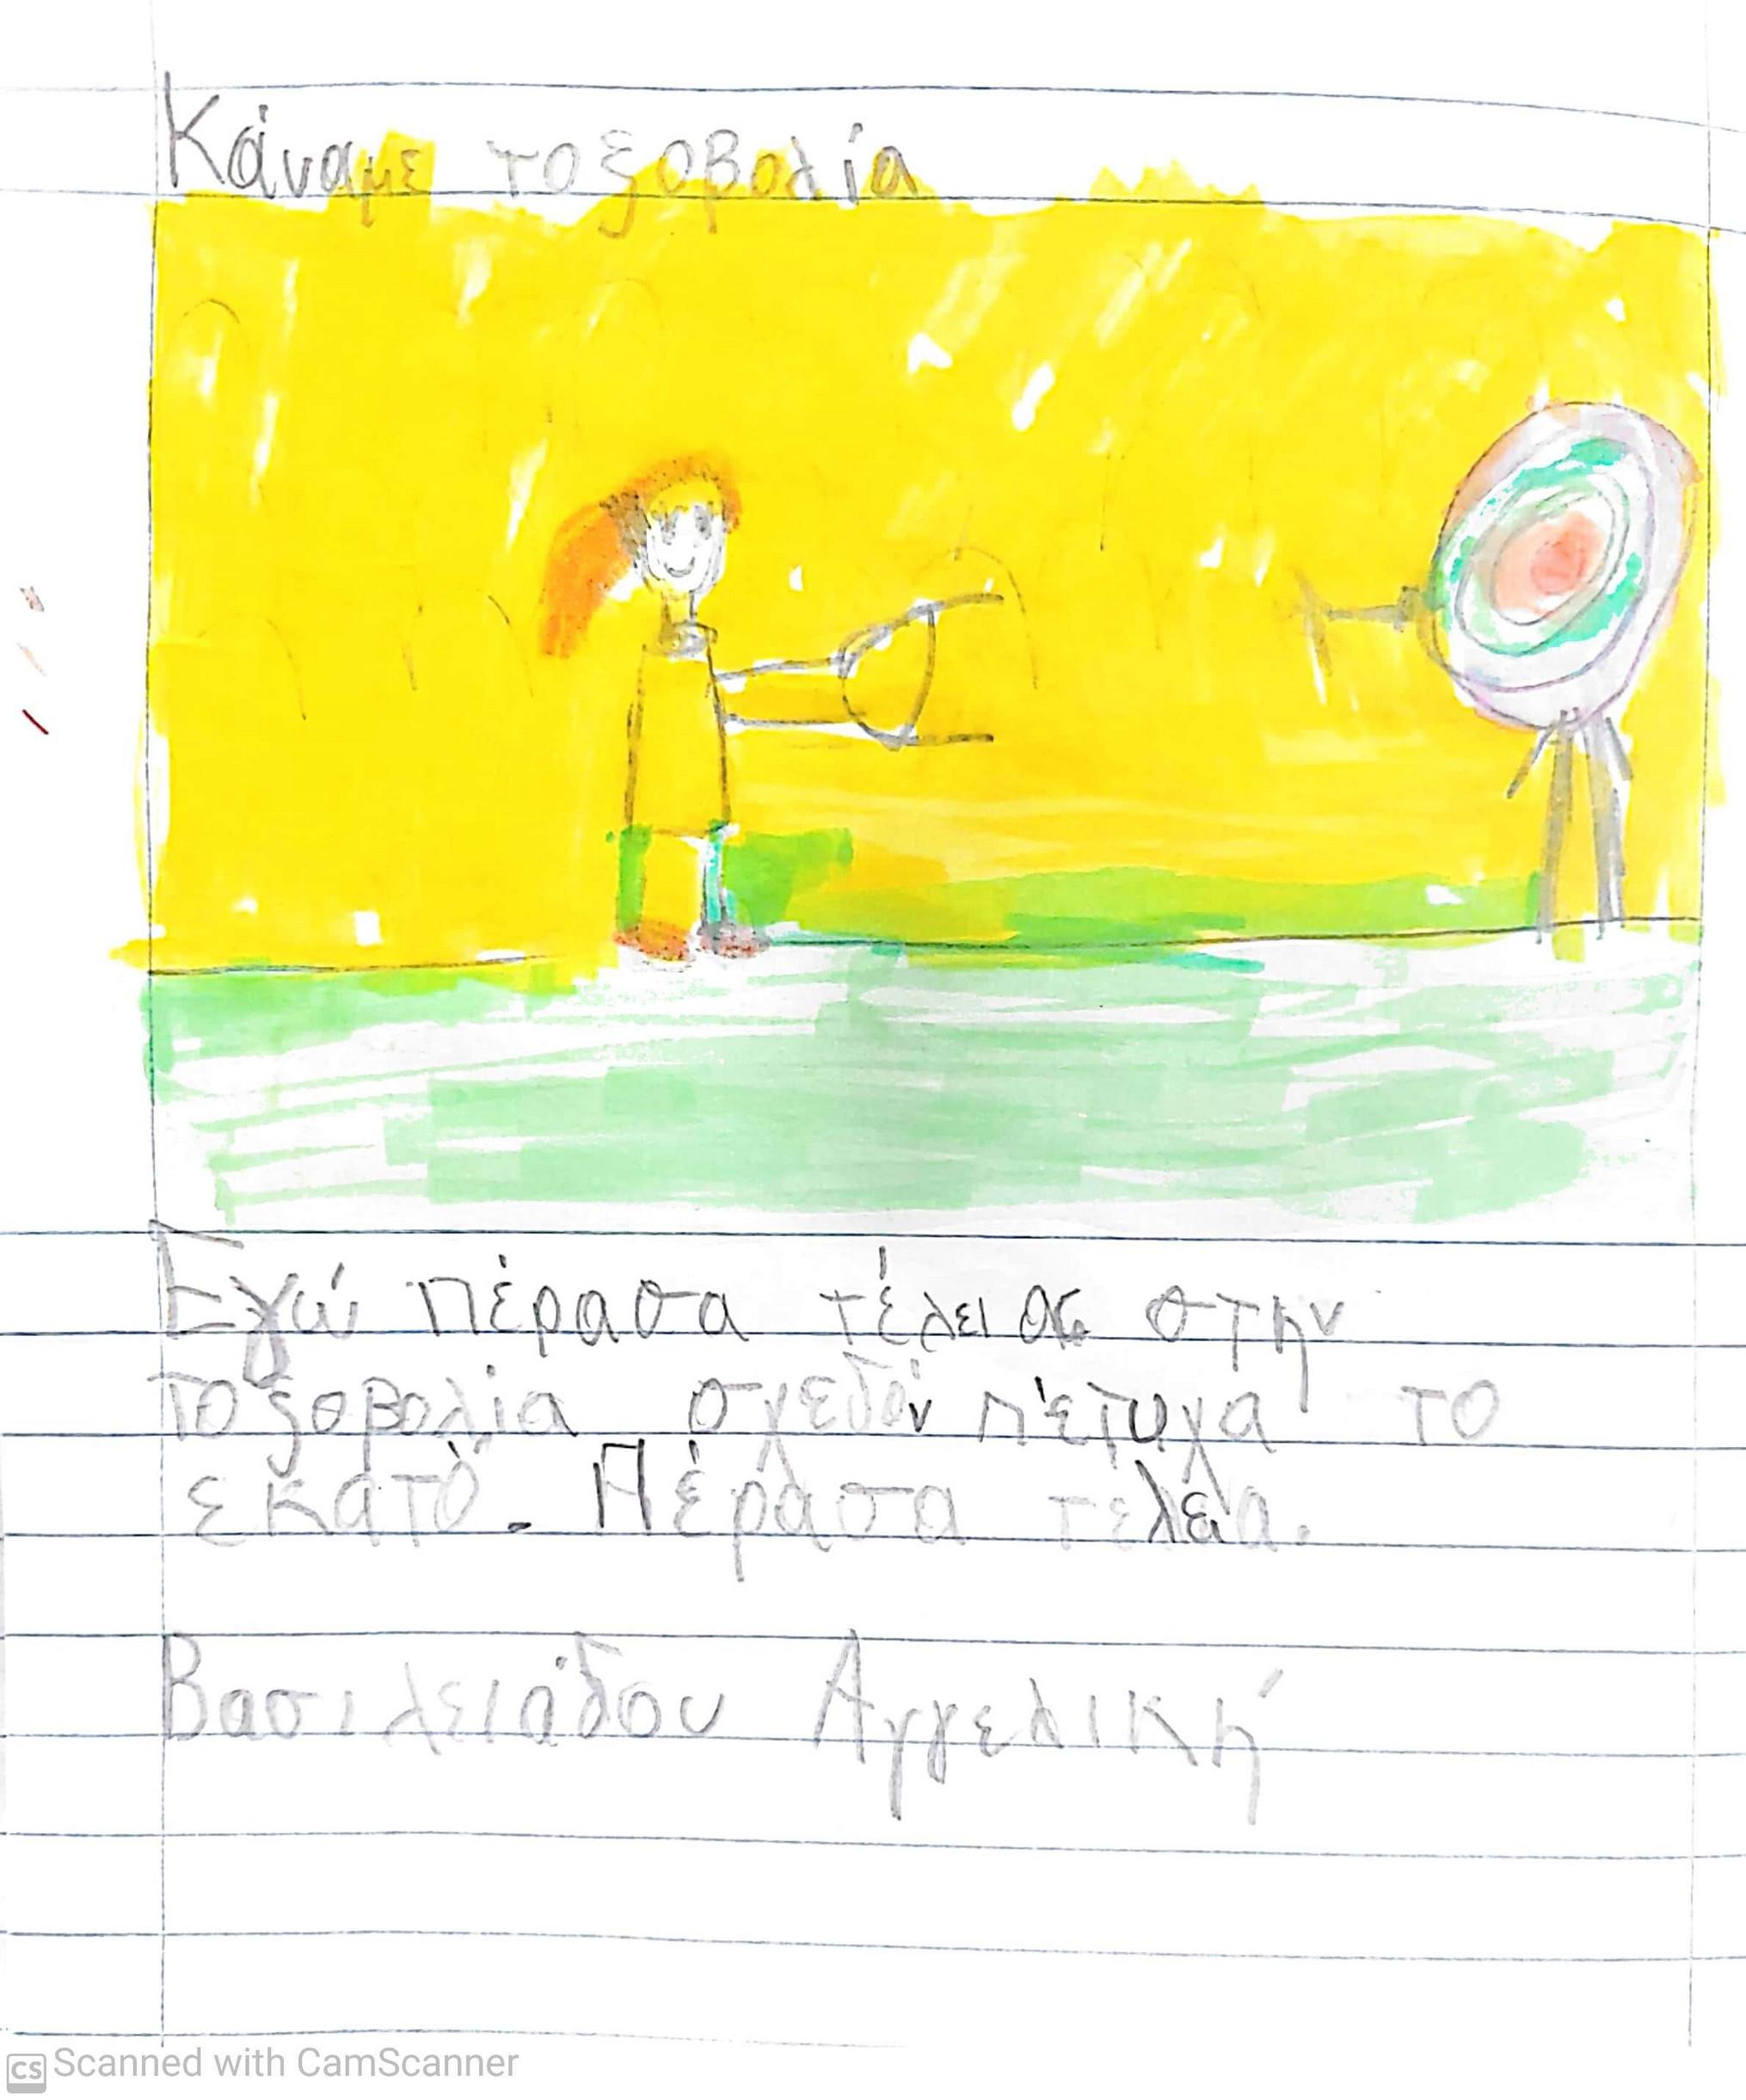 Κάναμε τοξοβολία
Εγώ πέρασα τέλεια στην
τοξοβολία σχεδόν πέτυχα το
εκατό. Πέρασα τέλεια.
Βασιλειάδου Αγγελική
CS Scanned with CamScanner